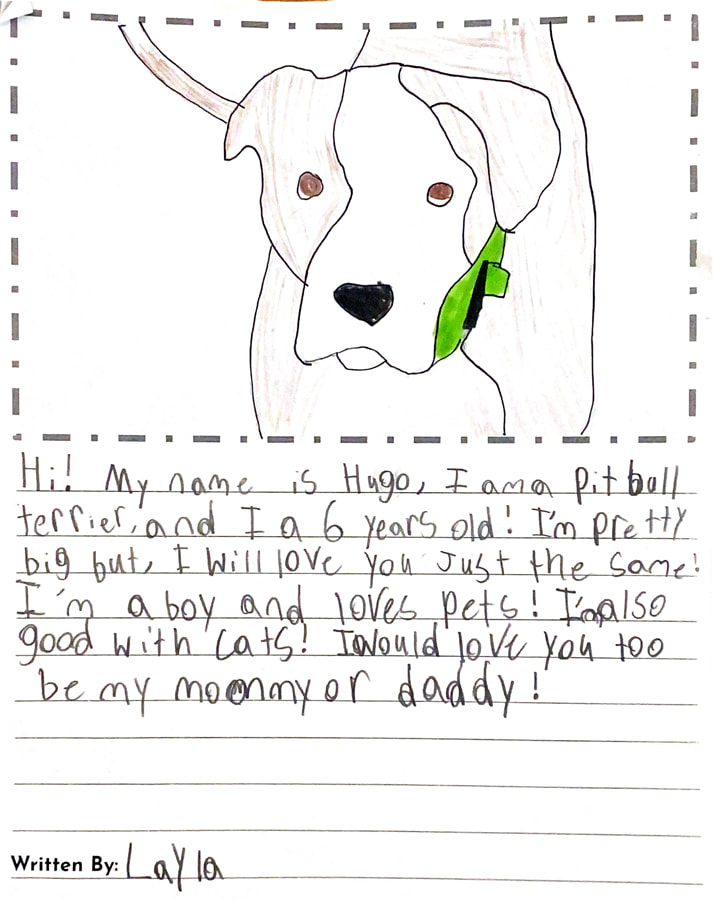 Hi! My name is Hugo, I am a pit bull
terrier, and I a 6 years old! I'm pretty
big but, I will love you Just the same!
I'm a boy and loves pets! I'm also
good with cats! I would love you too
be my mommy or daddy!
Written By: Layla